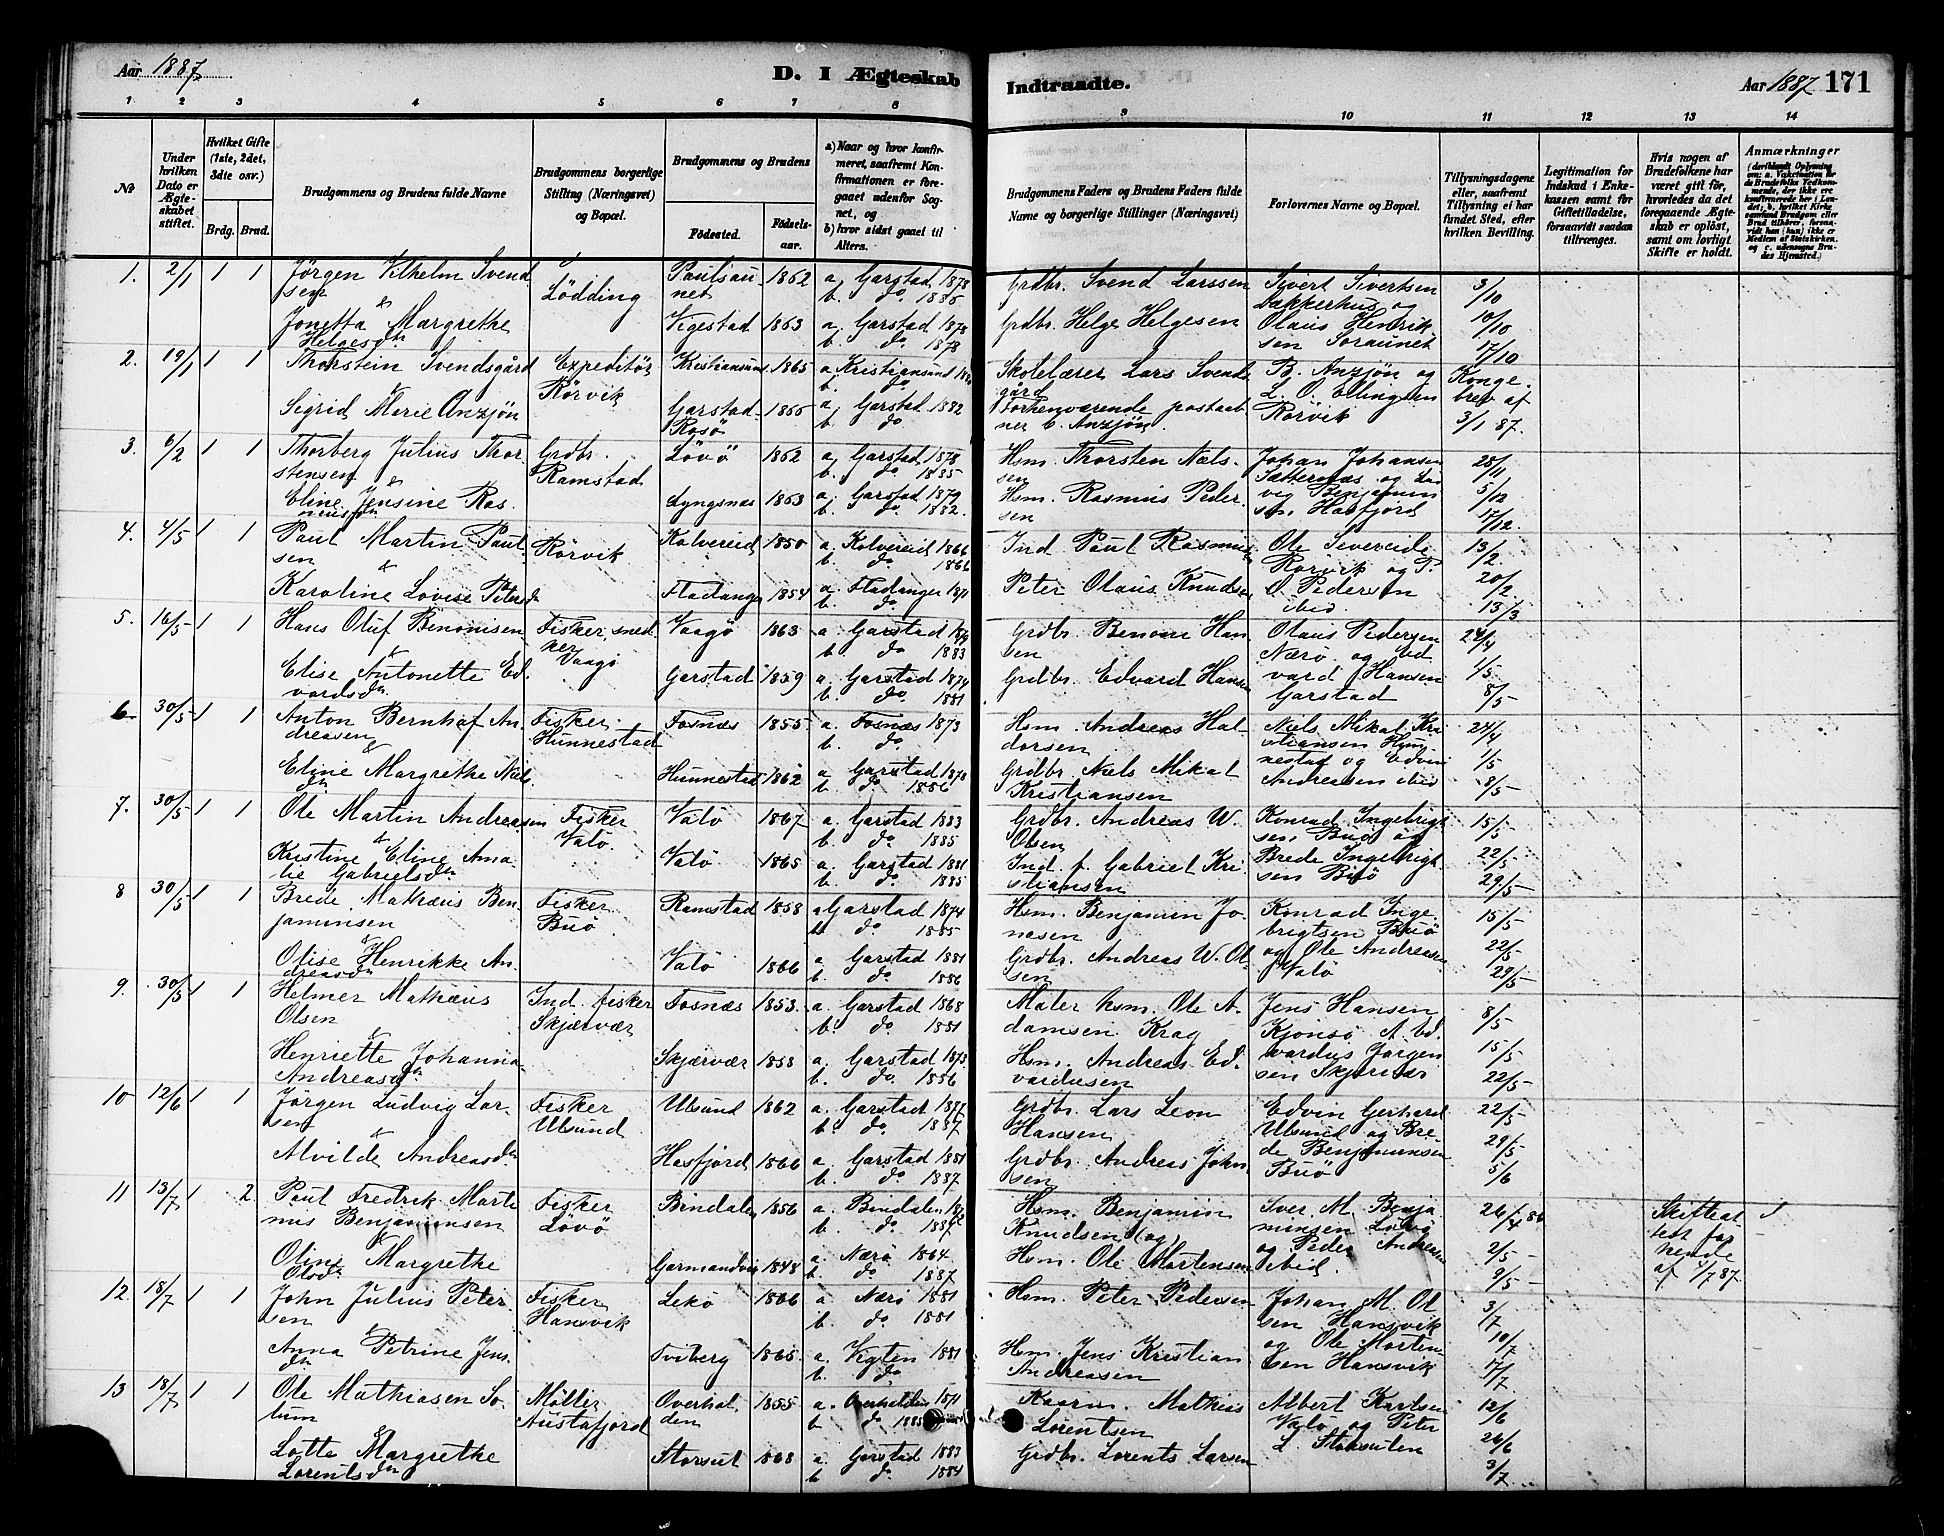 Aar 1887
D. I Ægteskab Indtraadte.
Aar 1887 171
1 2 3 4 5 6 7 8 9 10 11 12 13 14
No
Under hvilken Dato er Ægteskabet stiftet.
Hvilket Gifte (1ste, 2det, 3dte osv.)
Brdg. Brud.
Brudgommens og Brudens fulde Navne
Brudgommens borgerlige Stilling (Næringsvei) og Bopæl.
Brudgommens og Brudens
Fødested. Fødselsaar.
a) Naar og hvor konfirmeret, saafremt Konfirmationen er foregaaet udenfor Sognet, og
b) hvor sidst gaaet til Alters.
Brudgommens Faders og Brudens Faders fulde Navne og borgerlige Stillinger (Næringsvei)
Forlovernes Navne og Bopæl.
Tillysningsdagene eller, saafremt Tillysning ei har fundet Sted, efter hvilken Bevilling.
Legitimation for Indskud i Enkekassen samt for Giftetilladelse, forsaavidt saadan tiltrænges.
Hvis nogen af Brudefolkene har været gift før, hvorledes da det foregaaende Ægteskab er opløst, samt om lovligt Skifte er holdt.
Anmærkninger
1. 2/1 1 1 Jörgen Vilhelm Svendsen Lödding Paulsaunet 1862 a, Garstad 1878 b. do 1886 Grdbr. Svend Larssen Sivert Sivertsen Bakkerhus og 3/10
& Jonetta Margrethe Helgesdn Vegestad 1863 a, Garstad 1878 b. do 1878 Grdbr. Helge Helgesen Olaus Henriksen Soraunet 10/10 17/10
2. 19/1 1 1 Thorstein Svendsgård Expeditör Rörvik Kristiansund 1865 a Kristiansund b. do Skolelærer Lars Svendsgård B. Anzjøn og Kongebrev af
& Sigrid Merie Anzjøn Garstad Rosö a, Garstad 1882 b. do Forhenværende postaabner B. Anzjøn. L. O. Ellingsen Rörvik 3/1 87.
3. 6/2 1 1 Thorberg Julius Thorstensen Grdbr. Ramstad Lövö 1862 a, Garstad 1878 b. do 1885 Hsm. Thorsten Nilssen Johan Johansen Sætternæs og 28/11
& Eline Jensine Rasmusdn Lyngsnæs 1863 a, Garstad 1879 b. do 1882. Hsm. Rasmus Pedersen Benjaminsen Hasfjord 5/12 17/12.
4. 4/5 1 1 Paul Martin Paulsen Rörvik Kolvereid 1850 a, Kolvereid 1866 b. do 1866 Ind. Paul Rasmus Ole Severeide Rörvik og P. 13/2
& Karoline Lovise Petersdn Fladanger 1854 a. Fladanger 1871 b. do Peter Olaus Knudsen O Pedersen ibid. 20/2 13/3
5. 16/5 1 1 Hans Oluf Benonisen Fisker, snedker Vaagø Vaagø 1863 a Garstad b. do 1883 Grdbr. Benoni Hansen Olaus Pedersen Nærö og 24/4
& Elise Antonette Edvardsdn Garstad 1859 a. Garstad 1874 b. do. 1881 Grdbr. Edvard Hansen Edvard Hansen Garstad 1/5 8/5
6. 30/5 1 1 Anton Bernhof Andreasen Fisker. Hunnestad Fosnæs 1855 a. Fosnæs 1873 b. do. Hsm. Andreas Haldorsen Niels Mikal Kristiansen Hunnestad og 24/4
& Eline Margrethe Nielsdn Hunnestad 1862 a Garstad 1878 b do 1886 Grdbr Niels Mikal Kristiansen Edvin Andreasen ibid 1/5 8/5
7. 30/5 1 1 Ole Martin Andreasen Fisker Valö. Valö 1867 a. Garstad 1883 b. do 1885 Grdbr. Andreas W. Olsen Konrad Ingebrigtsen Buö og 15/5
& Kristine Eline Amalie Gabrielsdn Valö 1865 a. Garstad 1881 b. do. 1885 Ind. f. Gabriel Kristiansen Brede Ingebrigtsen Buö 22/5 29/5
8 30/5 1 1 Brede Mathæus Benjaminsen Fisker Buö Ramstad 1858 a Garstad 1874 b do 1885 Hsm. Benjamin Jonasen Konrad Ingebrigtsen Buö 15/5
& Olise Henrikke Andreasdn Valö 1866 a Garstad 1881 b. do 1886 Grdbr. Andreas W. Olsen og Ole Andreasen Valö 22/5 29/5
9. 30/5 1 1 Helmer Mathæus Olsen Ind. fisker Skjærvær Fosnæs 1853. a. Garstad 1868 b. do. 1881 Hsm. Ole Adamsen Krag Jens Hansen 8/5
& Henriette Johanna Andreasdn Skjærvær 1858 a. Garstad 1873 b. do. 1886 Hsm. Andreas Edvardsen Jørgensen Skjærvær 15/5 22/5
10 12/6 1 1 Jørgen Ludvig Larsen Fisker Ulsund Ulsund 1862 a. Garstad b. do. 1887 Grdbr. Lars Leon Hansen Edvin Gerhard Ulsund og 22/5
& Alvilde Andreasdn Hasfjord 1866 a. Garstad 1881 b. do. 1887 Grdbr. Andreas Johnsen Brede Benjaminsen Buö 29/5 5/6
11 13/7 1 2. Paul Fredrik Martinus Benjaminsen Fisker Lövö Bindalen 1856 a. Bindalen b. do 1887 Hsm. Benjamin Knudsen og Iver M. Benjaminsen Lövö 26/4 Skifteattest for hende af 4/7 87.
Oline Margrethe Olsdn Garmandvig 1848 a Nærö 1864 b do 1887 Hsm. Ole Mortensen og Peder Andreasen ibid. 2/5 9/5
12. 18/7 1 1 John Julius Petersen Fisker Hansvik Lekö 1866 a. Nærö 1881 b. do 1881 Hsm. Peter Pedersen Johan M. Olsen Hansvik 3/7
& Anna Petrine Jensdn Tviberg 1865. a. Vigten 1881 b. do Hsm. Jens Kristian Andreasen og Ole Mortensen Hansvik 10/7 17/7
13 18/7 1 1 Ole Mathiasen Solum Møller Austafjord Overhalden 1855 a. Overhalden 1871 b do 1885 Kaarm. Mathias Lorentsen Albert Karlsen Valö og Peter 12/6
Lotte Margrethe Lorentsdn Storsul 1868 a. Garstad 1883 b do. 1884 Grdbr. Lorents Larsen L. 26/6 3/7